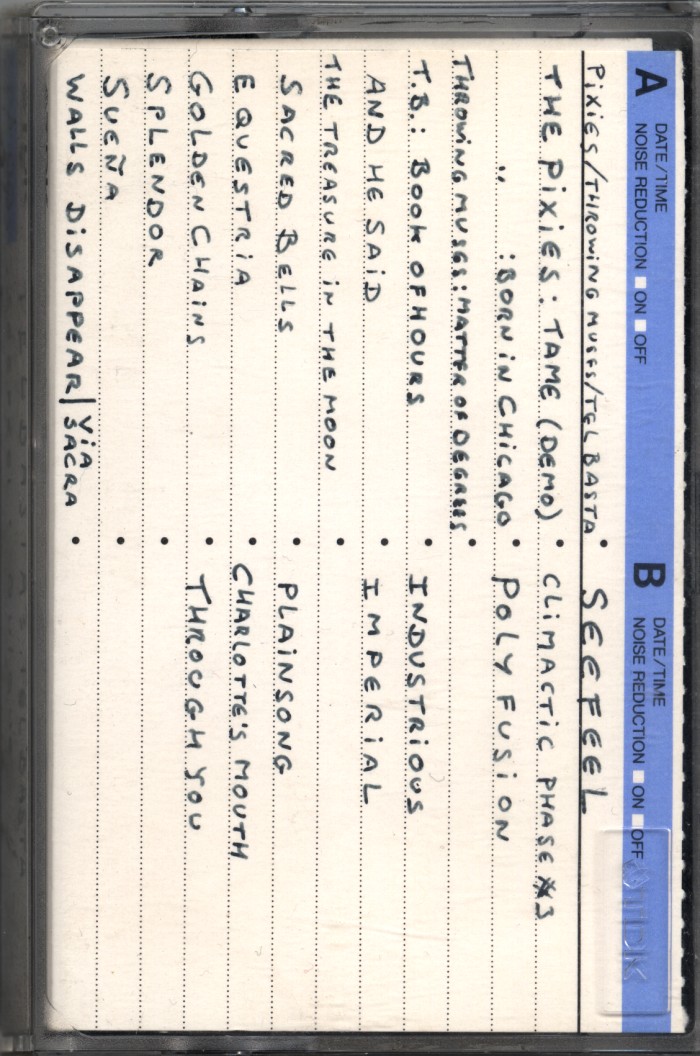 A DATE/TIME
NOISE REDUCTION ON OFF
PiXiES/THROWING MUSES/TEL BASTA
THE PiXiES: TAME (DEMO)
" : BORN iN CHiCAGO
THROWING MUSES: MATTER OF DEGREES
T.B.: BOOK OF HOURS
AND HE SAiD
THE TREASURE iN THE MOON
SACRED BELLS
EQUESTRiA
GOLDEN CHAiNS
SPLENDOR
SUEÑA
WALLS DiSAPPEAR/ViA SACRA
B DATE/TIME
NOISE REDUCTION ON OFF
SEEFEEL
CLiMACTiC PHASE #3
POLYFUSiON
INDUSTRiOUS
IMPERiAL
PLAiNSONG
CHARLOTTE'S MOUTH
THROUGH YOU